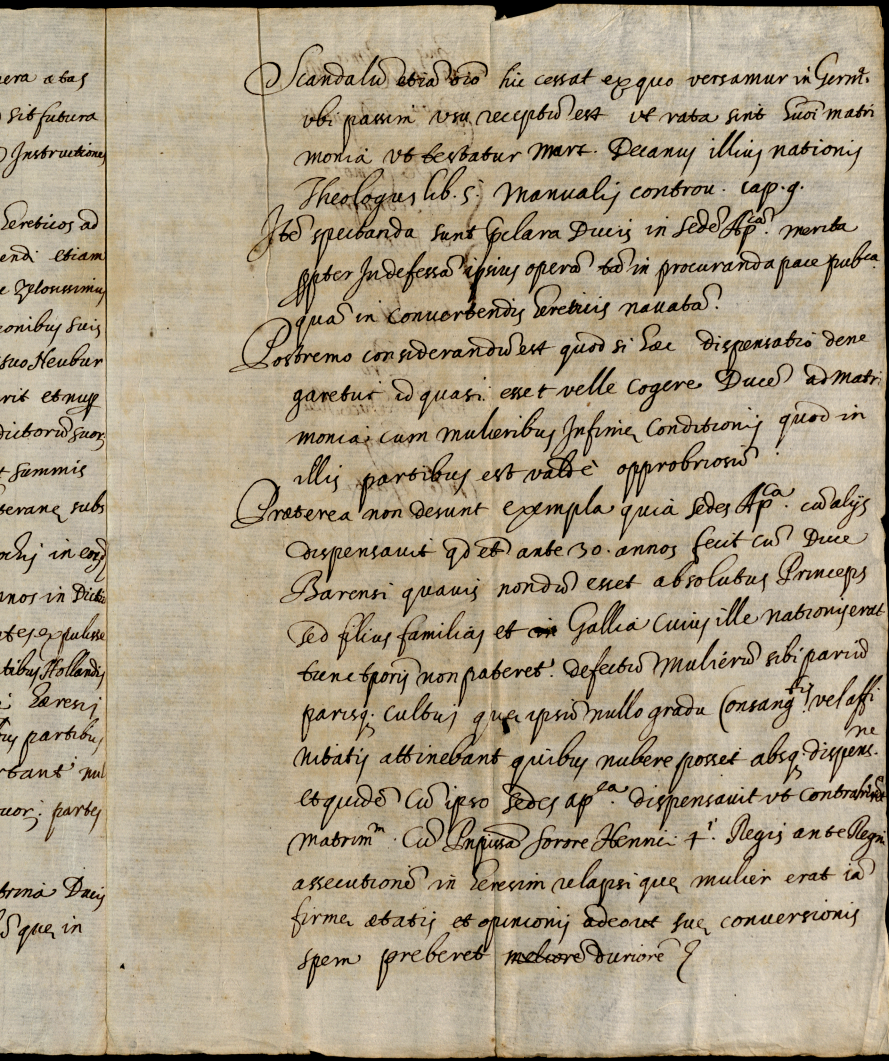 nera ætas
sit futura
Instructiones
hereticos ad
endi etiam
e zelosissimus
onibus suis
suo Neubur
rit et nusp
dictorũ suor
t summis
teraneę subs
nnos in
ates expulsse
tibus Hollandis
hæresis
us partibus
rtant' nul
uor; partes
trina Ducis
quę in
Scandalũ etiã hic cessat ex quo versamur in Germ.
vbi passim vsu receptũ est vt rata sint huõi matri
monia vt testatur Mart. Decanus illius nationis
Theologus lib. 5. Manualis controu. cap. 9.
Itẽ spectanda sunt p̃clara Ducis in Sedẽ Ap.cã merita
ppter Indefessã ipsius operã tã in procuranda pace pub.ca
quã in conuertendis hereticis nauatã.
Postremo considerandũ est quod si hæc dispensatio dene
garetur id quasi esset velle cogere Ducẽ ad Matri
monia cum mulieribus Infimę Conditionis quod in
illis partibus est valdè opprobriosũ.
Præterea non desunt exempla quia Sedes Ap.ca cũ alijs
dispensauit qd et ante 30. annos fecit cũ Duce
Barensi quauis nondũ esset absolutus Princeps
sed filius familias et in Gallia cuius ille nationis erat
tunc tporis non pateret' defectus Mulierũ sibi pariũ
parisq; cultus quę ipsũ nullo gradu Consang.tis vel affi
nitatis attinebant quibus nubere posset absq; dispens.ne
et quidẽ cũ ipso Sedes ap.ca dispensauit vt contraheret
matrim.m Cũ Sorore Henrici 4.i Regis ante Regni
assecutionẽ in heresim relapsi quę mulier erat iã
firmę ætatis et opinionis adeo ut suę conuersionis
spem preberet meliorẽ duriorẽ